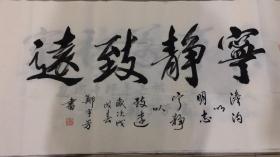 寧靜致遠
澹泊
以
明志
寧靜
以
致遠
歲次戊
戌春
鄭
書